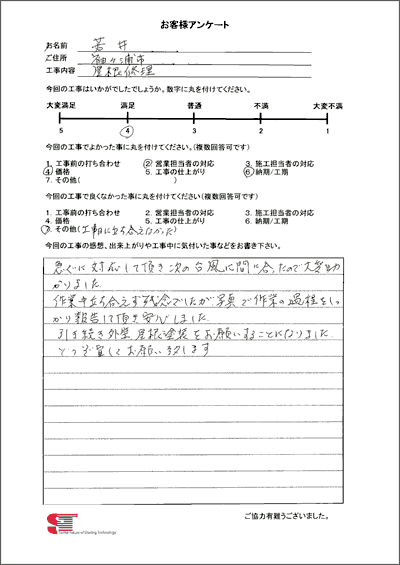 お客様アンケート
お名前 若井
ご住所 袖ヶ浦市
工事内容 屋根修理
今回の工事はいかがでしたでしょうか。数字に丸を付けてください。
大変満足 満足 普通 不満 大変不満
5 4 3 2 1
今回の工事でよかった事に丸を付けてください。(複数回答可です)
1. 工事前の打ち合わせ 2. 営業担当者の対応 3. 施工担当者の対応
4. 価格 5. 工事の仕上がり 6. 納期/工期
7. その他( )
今回の工事で良くなかった事に丸を付けてください(複数回答可です)
1. 工事前の打ち合わせ 2. 営業担当者の対応 3. 施工担当者の対応
4. 価格 5. 工事の仕上がり 6. 納期/工期
7. その他(工期に立ち合えなかった)
今回の工事の感想、出来上がりや工事中に気付いた事などをお書き下さい。
急ぐに対応して頂き次の台風に間に合ったので大変助
かりました
作業中立ち合えず残念でしたが写真で作業の過程をしっ
かり報告して頂き安心しました
引き続き外壁、屋根塗装をお願いすることになりました
どうぞ宜しくお願い致します
ご協力有難うございました。